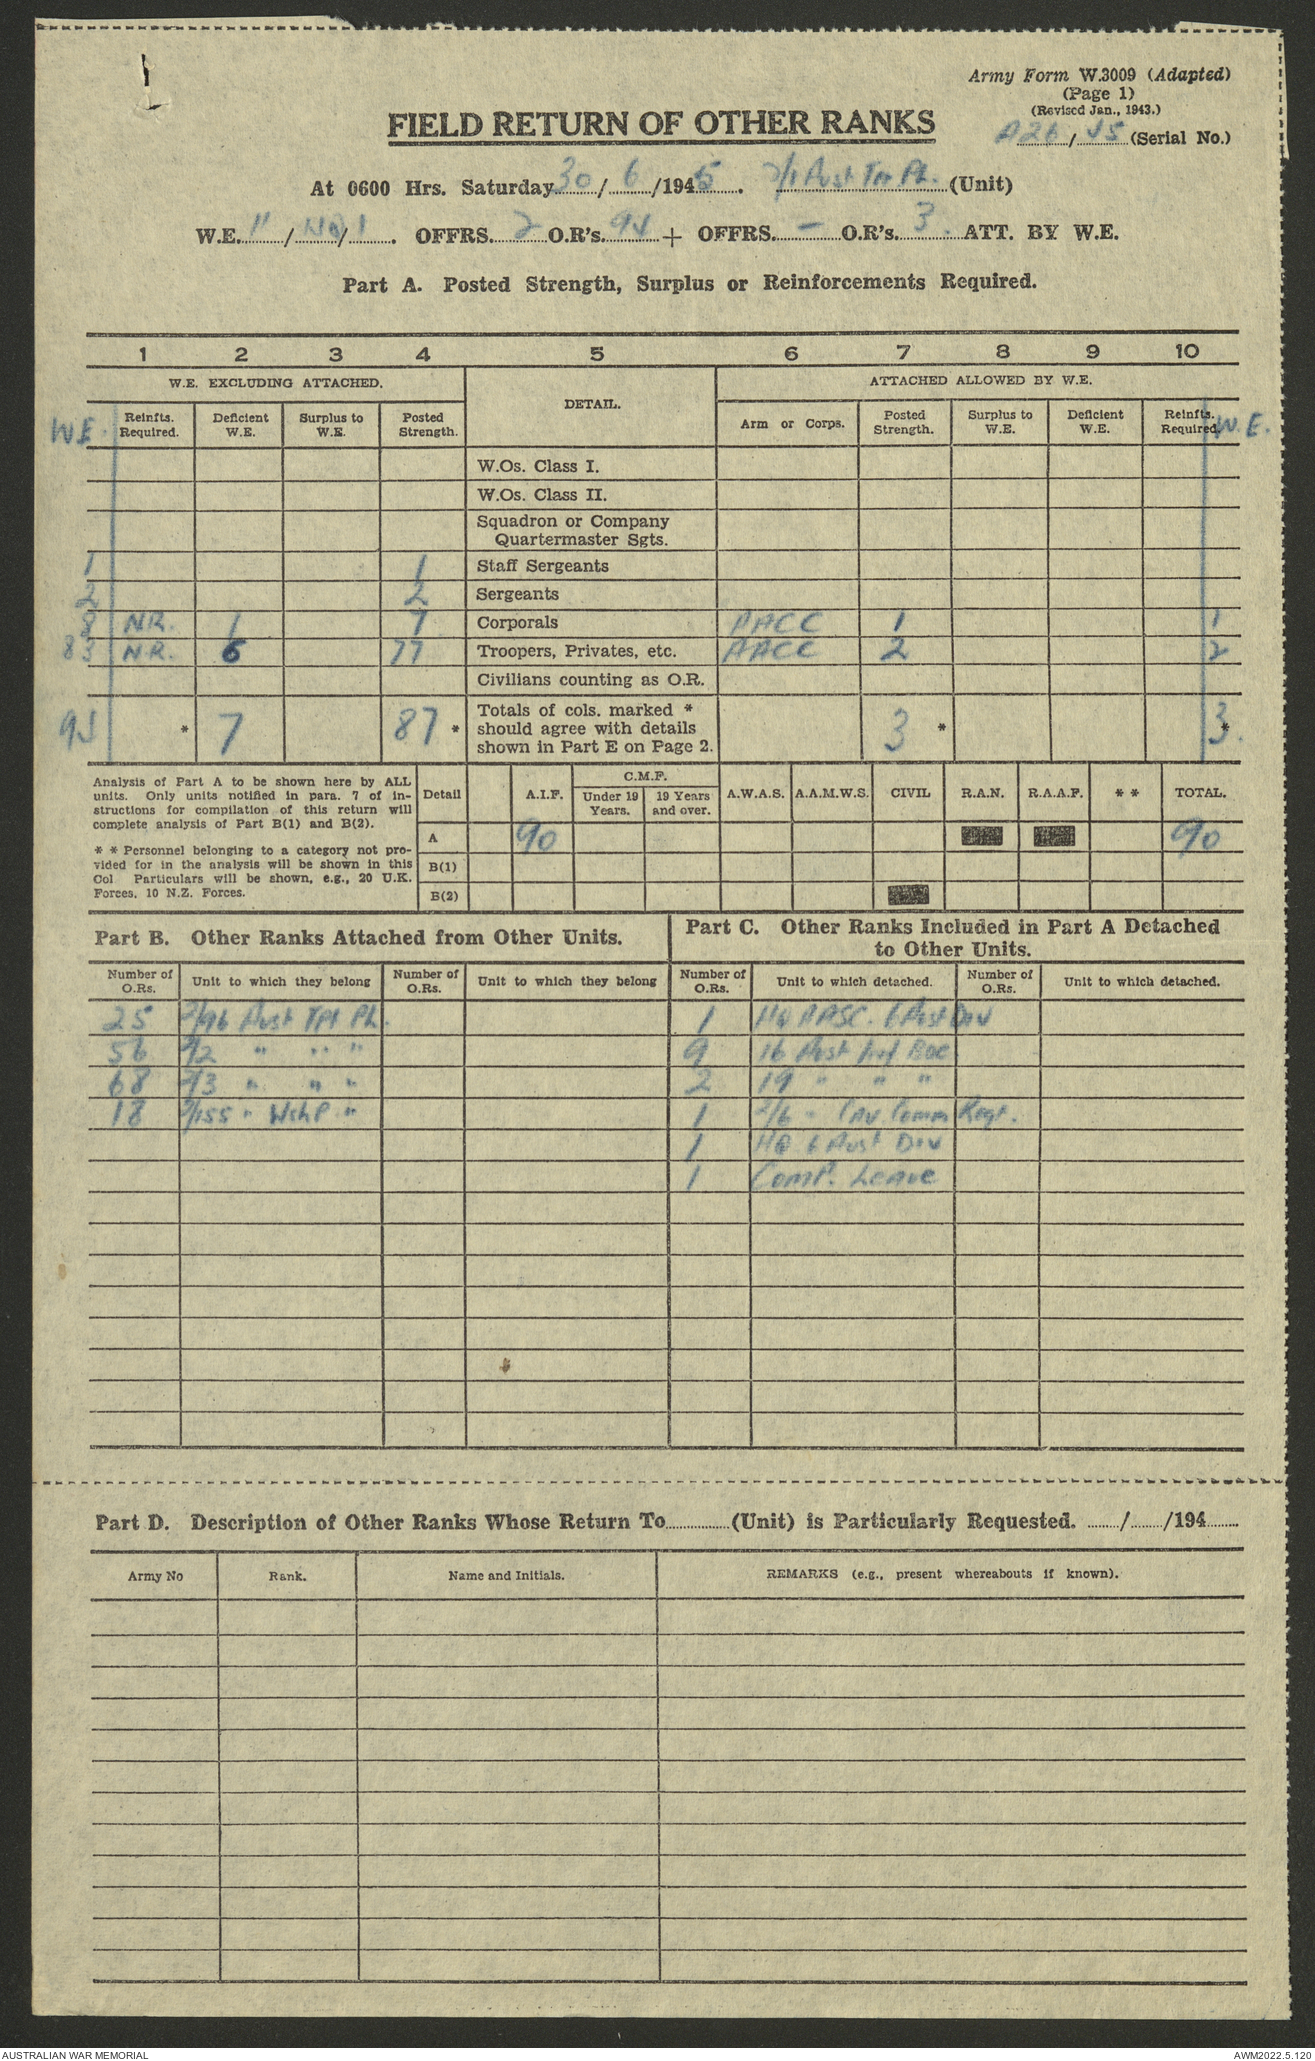 Army Form W.3009 (Adapted)
(Page 1)
(Revised Jan., 1943.)
FIELD RETURN OF OTHER RANKS
A26/45 (Serial No.)
At 0600 Hrs. Saturday 30/6/1945. 2/1 Aust Tpt Pl. (Unit)
W.E. 11/ /1. OFFRS. 2 O.R's. 94 + OFFRS. — O.R's. 3. ATT. BY W.E.
Part A. Posted Strength, Surplus or Reinforcements Required.
1 2 3 4 5 6 7 8 9 10
W.E. EXCLUDING ATTACHED. DETAIL. ATTACHED ALLOWED BY W.E.
W.E. Reinfts. Required. Deficient W.E. Surplus to W.E. Posted Strength. Arm or Corps. Posted Strength. Surplus to W.E. Deficient W.E. Reinfts. Required W.E.
W.Os. Class I.
W.Os. Class II.
Squadron or Company
Quartermaster Sgts.
1 1 Staff Sergeants
2 2 Sergeants
8 N.R. 1 7 Corporals AACC 1 1
83 N.R. 6 77 Troopers, Privates, etc. AACC 2 2
Civilians counting as O.R.
94 * 7 87 * Totals of cols. marked * should agree with details shown in Part E on Page 2. 3 * 3. *
Analysis of Part A to be shown here by ALL
units. Only units notified in para. 7 of in-
structions for compilation of this return will
complete analysis of Part B(1) and B(2).
* * Personnel belonging to a category not pro-
vided for in the analysis will be shown in this
Col Particulars will be shown, e.g., 20 U.K.
Forces, 10 N.Z. Forces.
Detail A.I.F. C.M.F. Under 19 Years. 19 Years and over. A.W.A.S. A.A.M.W.S. CIVIL R.A.N. R.A.A.F. * * TOTAL.
A 90 90
B(1)
B(2)
Part B. Other Ranks Attached from Other Units.
Number of O.Rs. Unit to which they belong Number of O.Rs. Unit to which they belong
25 2/96 Aust Tpt Pl.
56 2/2 " " "
68 2/3 " " "
18 2/155 " Wshp "
Part C. Other Ranks Included in Part A Detached
to Other Units.
Number of O.Rs. Unit to which detached. Number of O.Rs. Unit to which detached.
1 HQ AASC. 6 Aust Div
9 16 Aust Inf Bde
2 19 " " "
1 2/6 " Cav Comm Regt.
1 HQ 6 Aust Div
1 Comp. Leave
Part D. Description of Other Ranks Whose Return To ............ (Unit) is Particularly Requested. ....../....../194......
Army No Rank. Name and Initials. REMARKS (e.g., present whereabouts if known).
AUSTRALIAN WAR MEMORIAL AWM2022.5.120